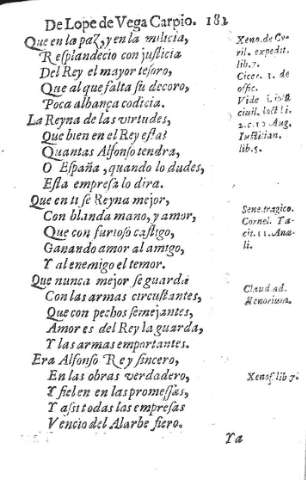 De Lope de Vega Carpio. 182
Que en la paz, y en la milicia,
Resplandecio con justicia
Del Rey el mayor tesoro,
Que al que falta su decoro,
Poca alabança codicia.
La Reyna de las virtudes,
Que bien en el Rey estas
Quantas Alfonso tendra,
O España, quando lo dudes,
Esta empresa lo dira.
Que en ti se Reyna mejor,
Con blanda mano, y amor,
Que con furioso castigo,
Ganando amor al amigo,
Y al enemigo el temor.
Que nunca mejor se guarda
Con las armas circustantes,
Que con pechos semejantes,
Amor es del Rey la guarda,
Y las armas emportantes.
Era Alfonso Rey sincero,
En las obras verdadero,
Y fiel en las promessas,
Y assi todas las empresas
Vencio del Alarbe fiero.
Ya
Xeno. de Cy-
ril. expedit.
lib. 7.
Cicer. 1. de
offic.
Vide
civil.
2. c. 12 Aug.
Iustinian.
lib. 5.
Sene. tragico.
Cornel. Ta-
cit. 11. Ana-
li.
Claud. ad.
Honorium.
Xenof. lib 7.